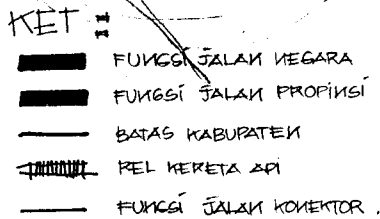 KET :
FUNGSI JALAN NEGARA
FUNGSI JALAN PROPINSI
BATAS KABUPATEN
REL KERETA API
FUNGSI JALAN KONEKTOR .